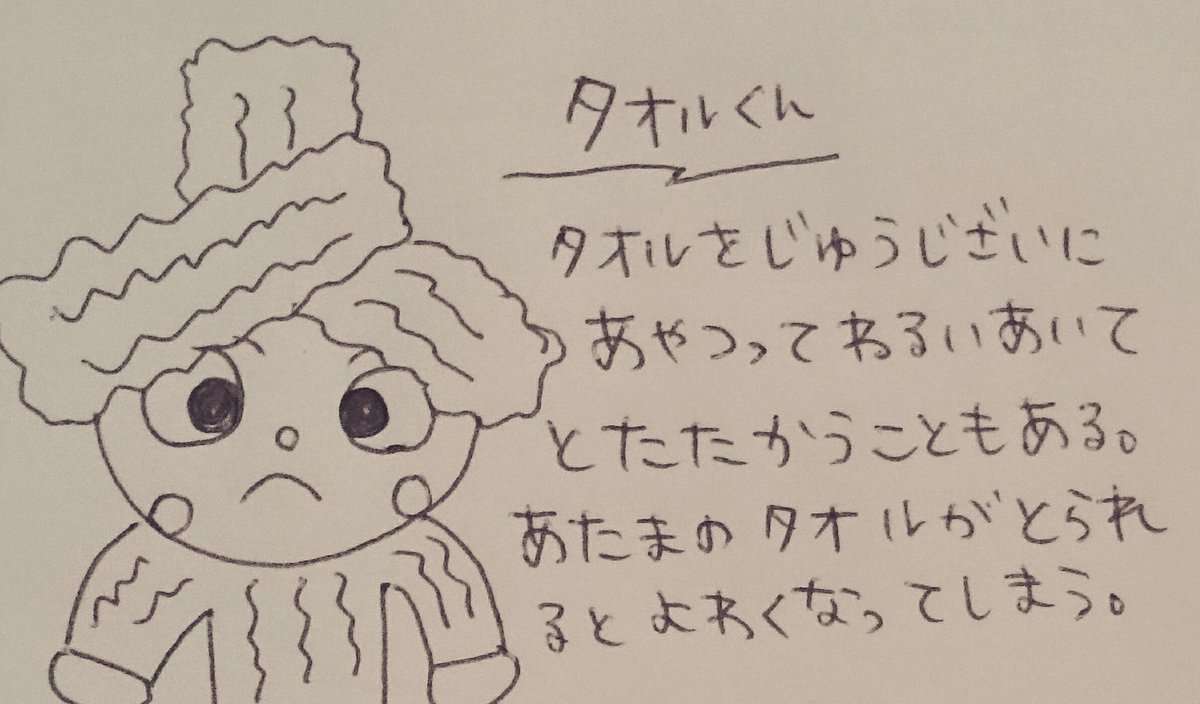 タオルくん
タオルをじゅうじざいに
あやつってわるいあいて
とたたかうこともある。
あたまのタオルがとられ
るとよわくなってしまう。